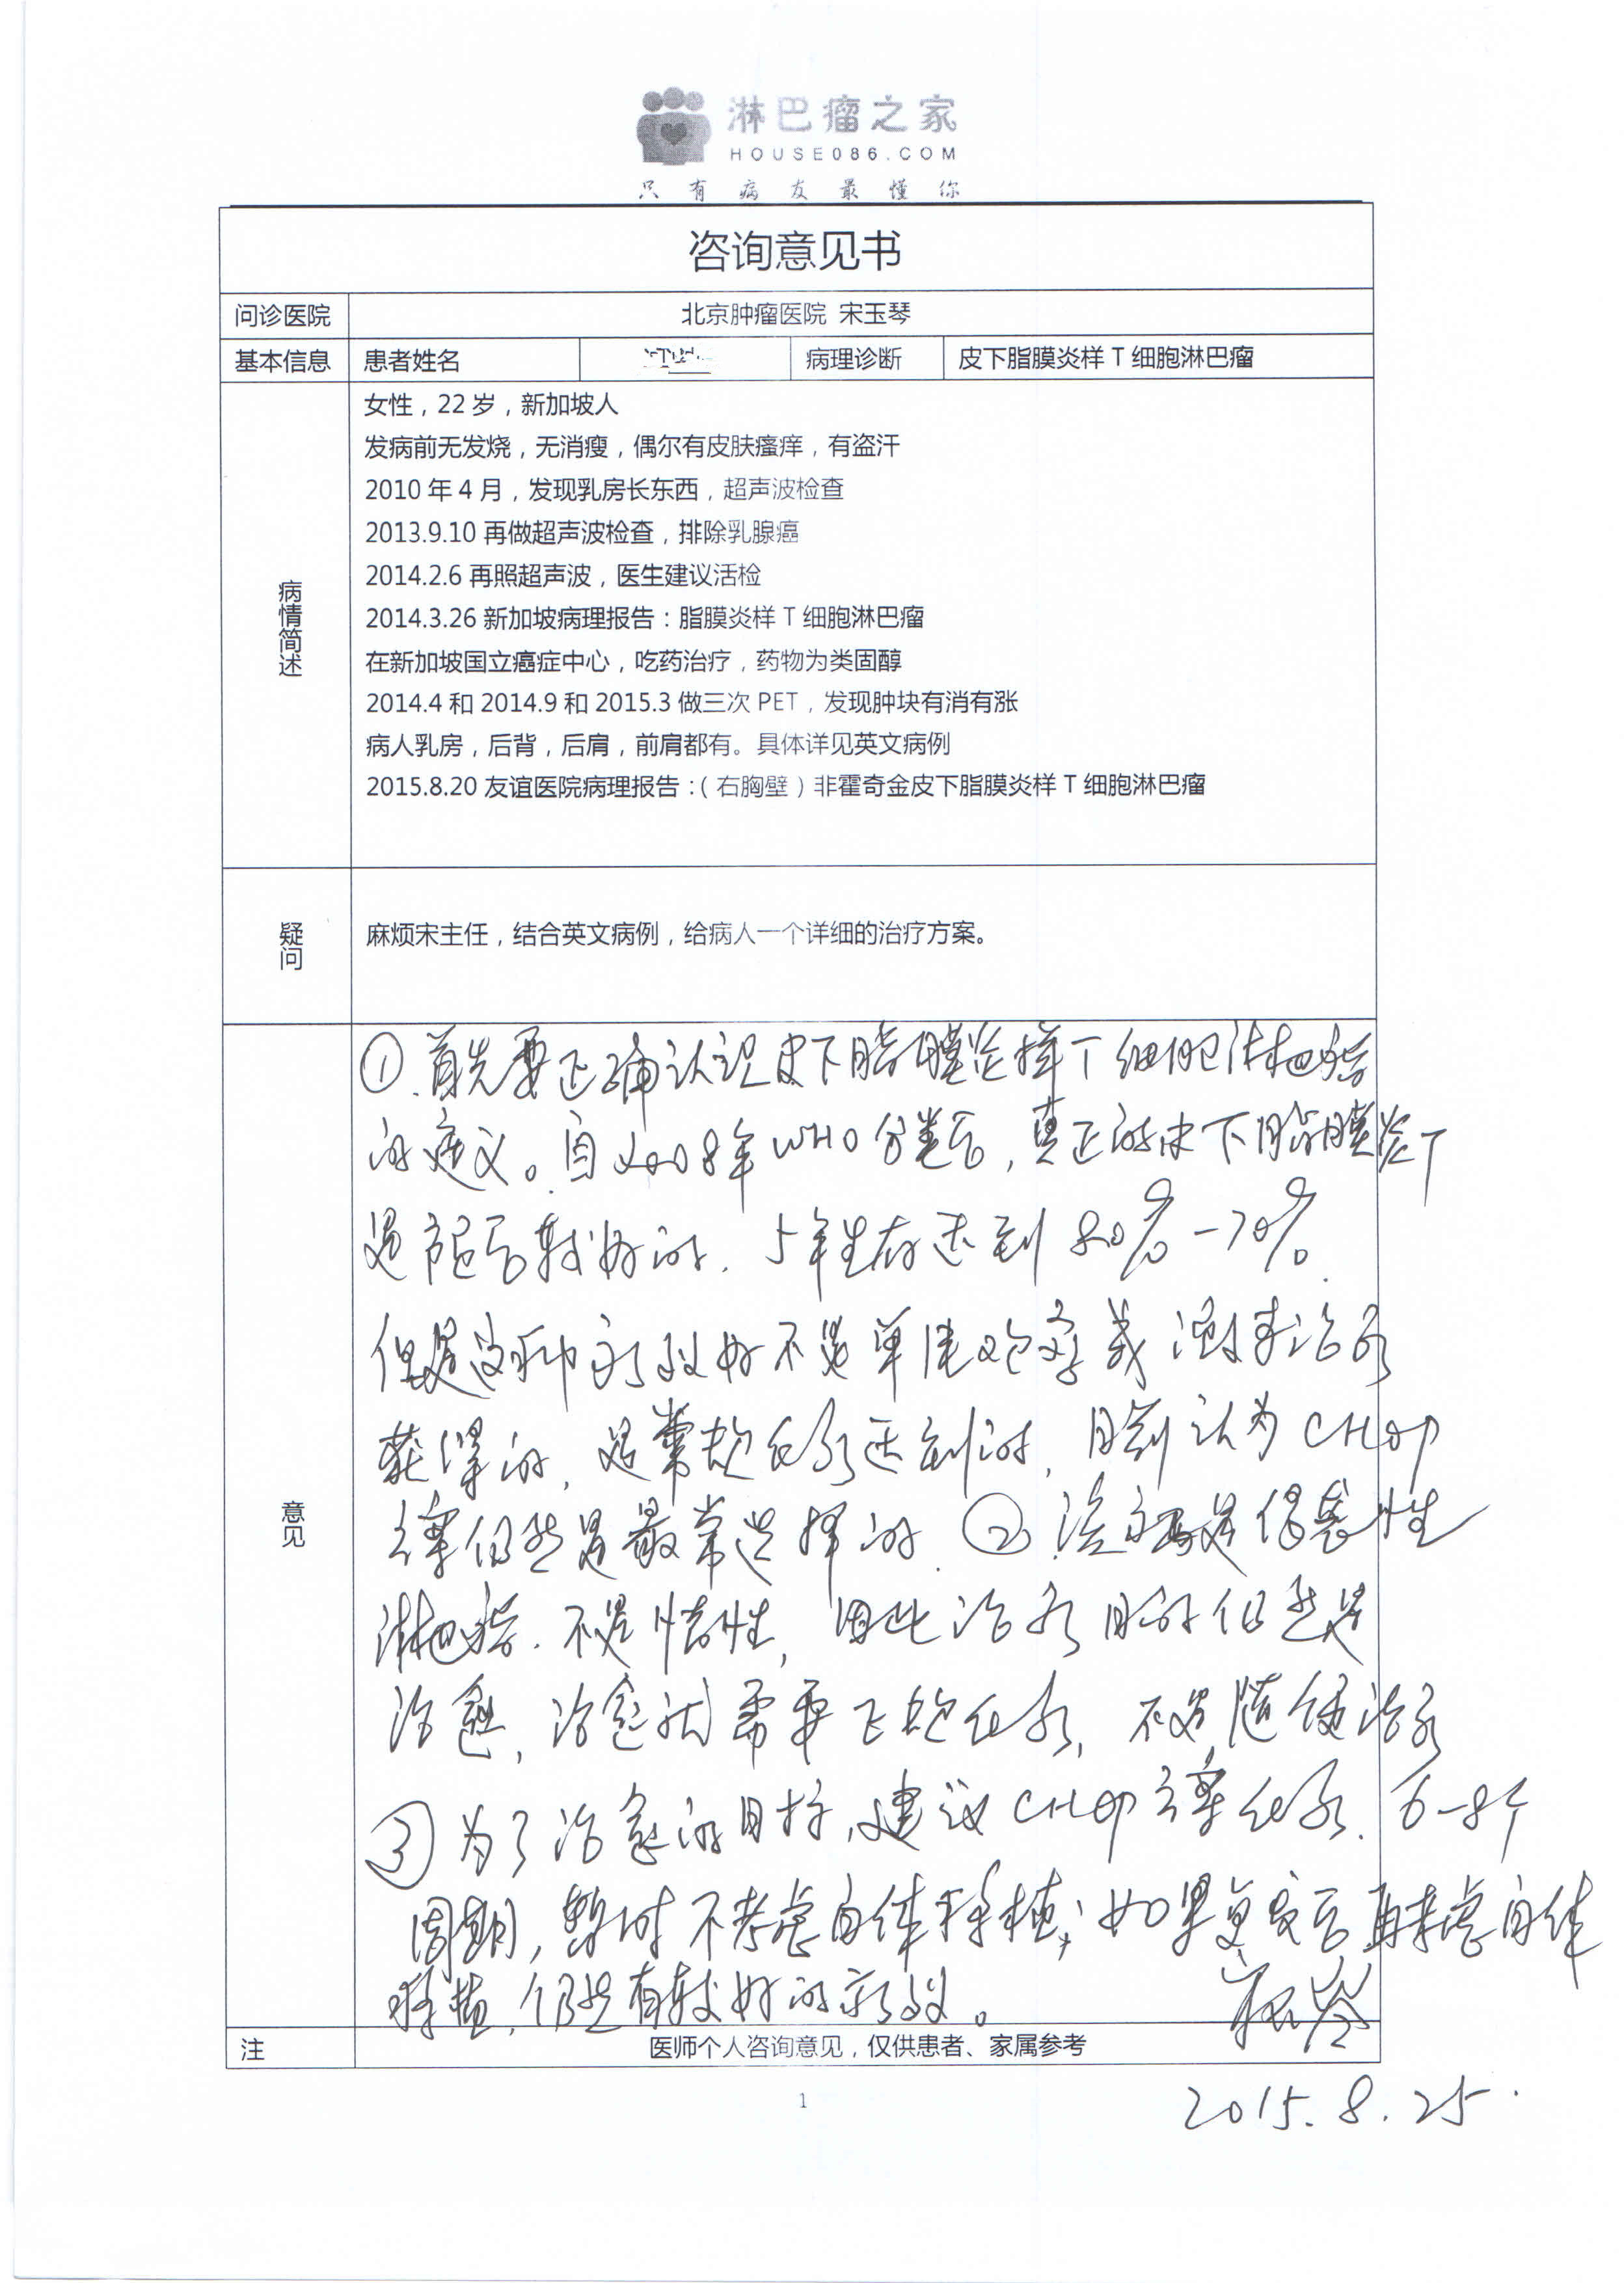 淋巴瘤之家
HOUSE086.COM
只有病友最懂你
咨询意见书
问诊医院 北京肿瘤医院 宋玉琴
基本信息 患者姓名 病理诊断 皮下脂膜炎样 T 细胞淋巴瘤
病情简述
女性，22 岁，新加坡人
发病前无发烧，无消瘦，偶尔有皮肤瘙痒，有盗汗
2010 年 4 月，发现乳房长东西，超声波检查
2013.9.10 再做超声波检查，排除乳腺癌
2014.2.6 再照超声波，医生建议活检
2014.3.26 新加坡病理报告：脂膜炎样 T 细胞淋巴瘤
在新加坡国立癌症中心，吃药治疗，药物为类固醇
2014.4 和 2014.9 和 2015.3 做三次 PET，发现肿块有消有涨
病人乳房，后背，后肩，前肩都有。具体详见英文病例
2015.8.20 友谊医院病理报告：（右胸壁）非霍奇金皮下脂膜炎样 T 细胞淋巴瘤
疑问
麻烦宋主任，结合英文病例，给病人一个详细的治疗方案。
意见
①.首先要正确认识皮下脂膜炎样T细胞淋巴瘤
的定义。自2008年WHO分类后，真正的皮下脂膜炎T
是预后较好的. 5年生存达到80%-70%.
但是这种疗效好不是单用 或 治疗
获得的，是常规化疗达到的，目前认为CHOP
方案仍然是最常选择的. ② 是侵袭性
淋巴瘤.不是惰性，因此治疗目的仍然是
治愈，治愈就需要正规化疗，不是随便治疗
③为了治愈的目标,建议CHOP方案化疗. 6-8个
周期，暂时不考虑自体移植;如果复发后再考虑自体
移植，仍然有较好的疗效。 宋玉琴
注 医师个人咨询意见，仅供患者、家属参考
1
2015.8.25.